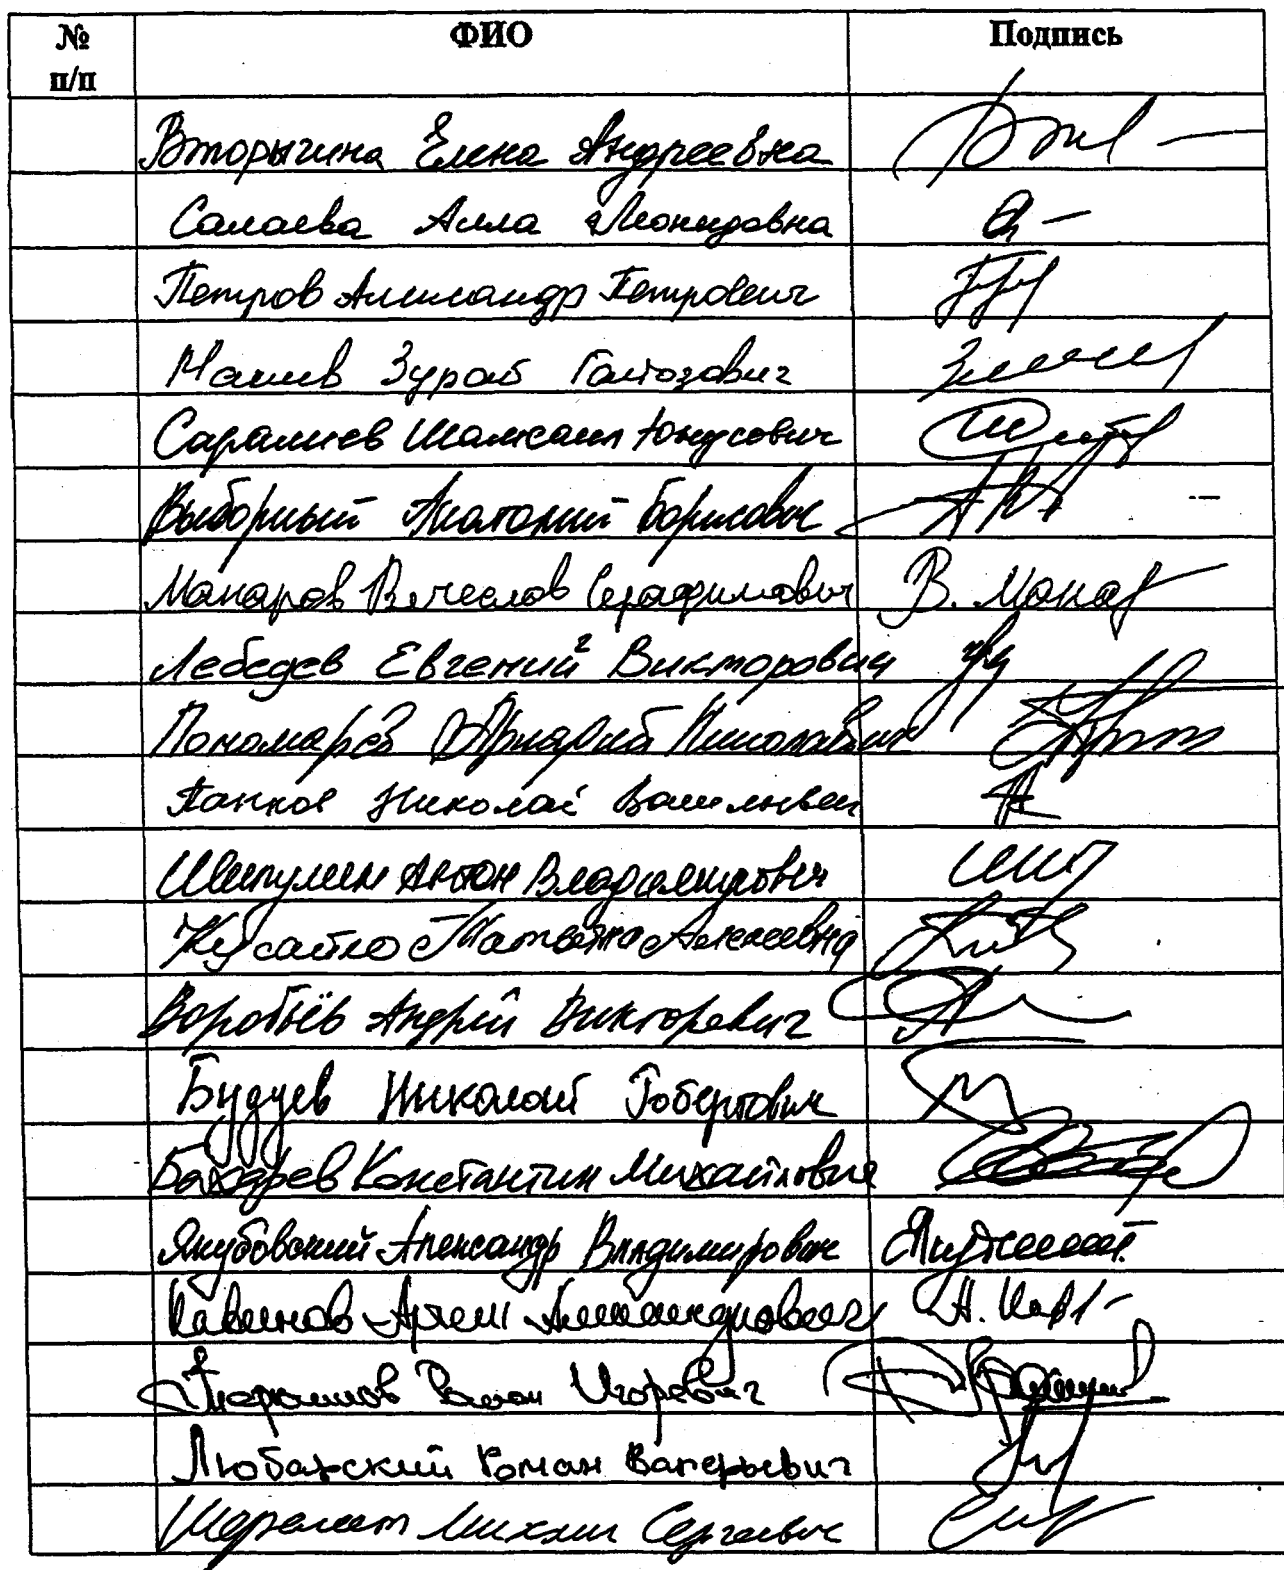 № п/п ФИО Подпись
Вторыгина Елена Андреевна
Салаева Алла Леонидовна
Петров Александр Петрович
Зураб Гайозович
Саралиев Шамсаил Юнусович
Выборный Анатолий Борисович
Макаров Вячеслав Серафимович В. Макар
Лебедев Евгений Викторович
Пономарёв Аркадий Николаевич
Панков Николай Васильевич
Шипулин Антон Владимирович
Кусайко Татьяна Алексеевна
Воробьёв Андрей Викторович
Будуев Николай Робертович
Бахарев Константин Михайлович
Якубовский Александр Владимирович
Кавинов Артём Александрович
Роман Игоревич
Любарский Роман Валерьевич
Шеремет Михаил Сергеевич